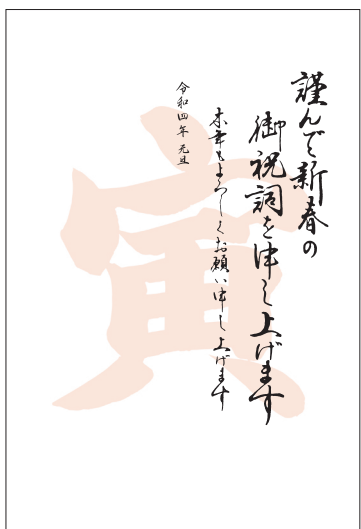 謹んで新春の
御祝詞を申し上げます
本年もよろしくお願い申し上げます
令和四年 元旦
寅